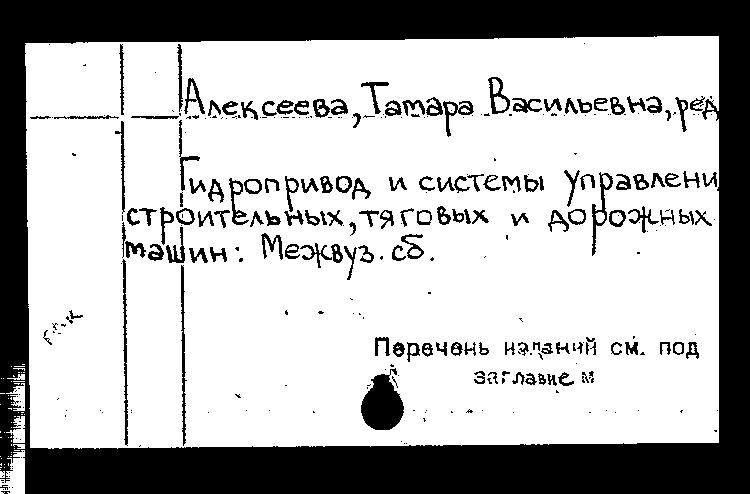 Алексеева, Тамара Васильевна, ред
Гидропривод и системы управлени
строительных, тяговых и дорожных
машин: Межвуз. сб.
Перечень изданий см. под
заглавием